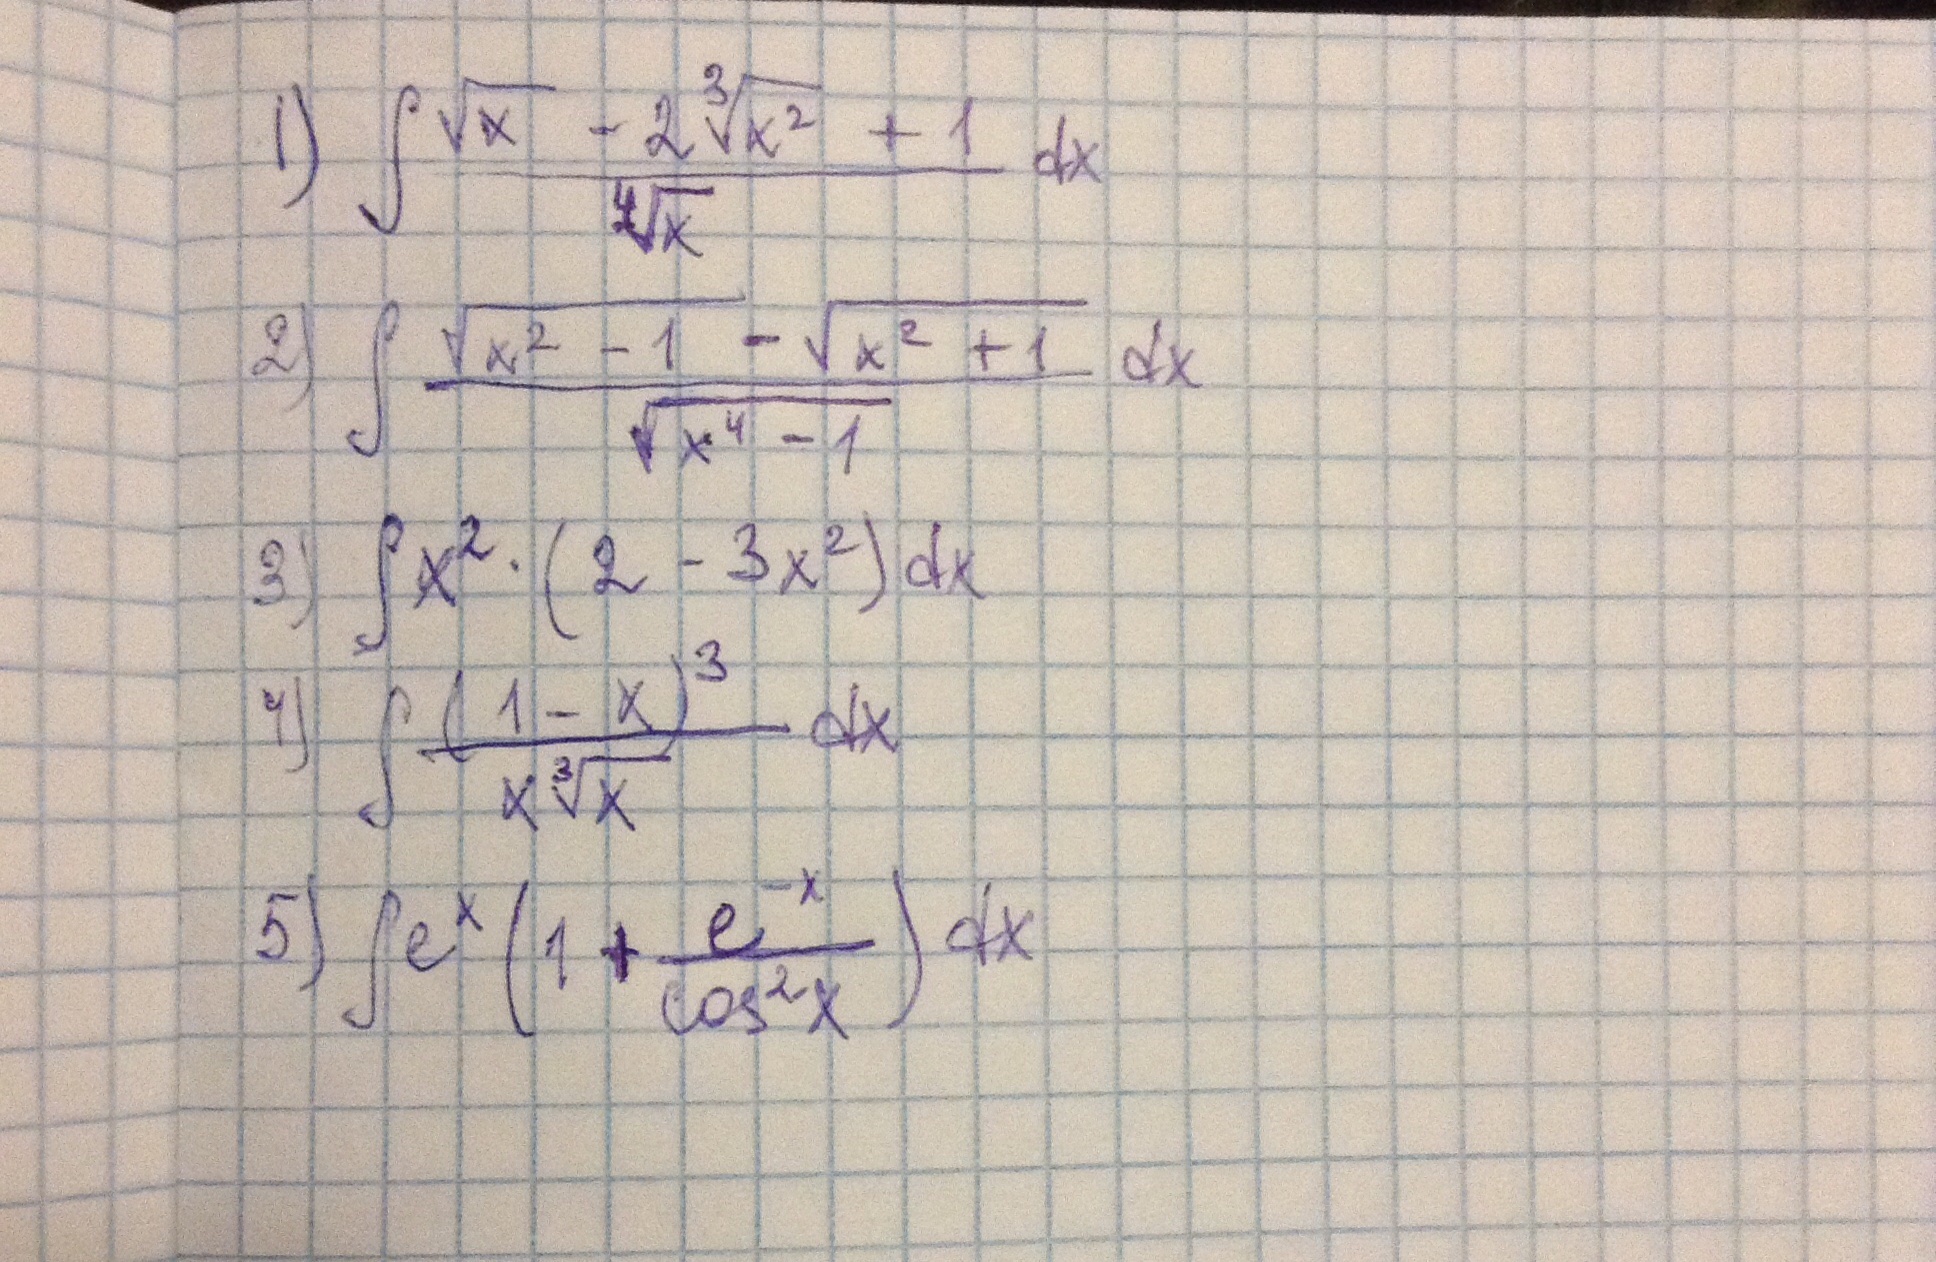 1) ∫ (√x - 2∛(x²) + 1) / ∜x dx
2) ∫ (√(x² - 1) - √(x² + 1)) / √(x⁴ - 1) dx
3) ∫ x² · (2 - 3x²) dx
4) ∫ (1 - x)³ / (x∛x) dx
5) ∫ eˣ (1 + e⁻ˣ / cos²x) dx